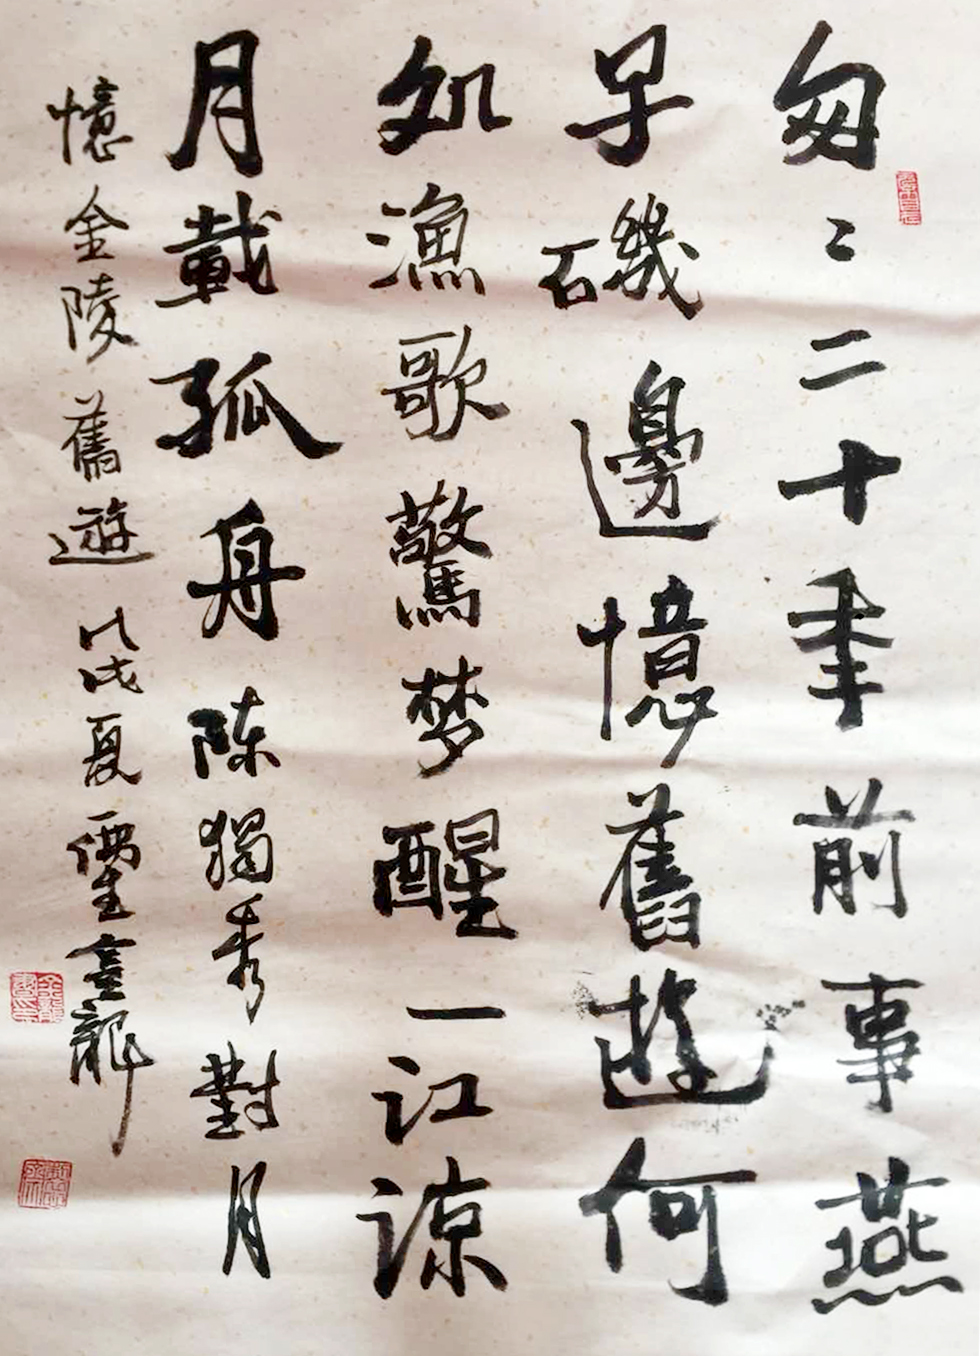 匆〻二十年前事燕
子磯邊憶舊遊何
処漁歌驚梦醒一江涼
月載孤舟陳獨秀對月
憶金陵舊遊戊戌夏儒生金龍